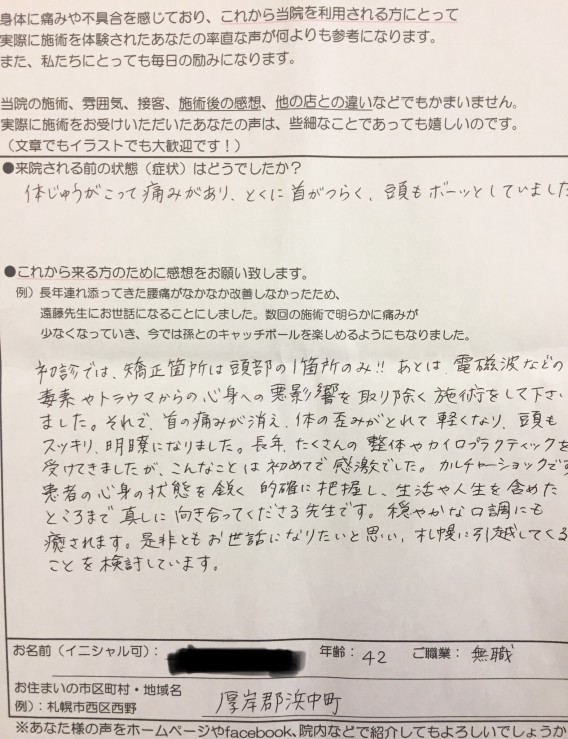 身体に痛みや不具合を感じており、これから当院を利用される方にとって
実際に施術を体験されたあなたの率直な声が何よりも参考になります。
また、私たちにとっても毎日の励みになります。
当院の施術、雰囲気、接客、施術後の感想、他の店との違いなどでもかまいません。
実際に施術をお受けいただいたあなたの声は、些細なことであっても嬉しいのです。
（文章でもイラストでも大歓迎です！）
●来院される前の状態（症状）はどうでしたか？
体じゅうがこって痛みがあり、とくに首がつらく、頭もボーッとしていました
●これから来る方のために感想をお願い致します。
例）長年連れ添ってきた腰痛がなかなか改善しなかったため、
遠藤先生にお世話になることにしました。数回の施術で明らかに痛みが
少なくなっていき、今では孫とのキャッチボールを楽しめるようにもなりました。
初診では、矯正箇所は頭部の1箇所のみ!! あとは、電磁波などの
毒素やトラウマからの心身への悪影響を取り除く施術をして下さい
ました。それで、首の痛みが消え、体の歪みがとれて軽くなり、頭も
スッキリ、明瞭になりました。長年、たくさんの整体やカイロプラクティックを
受けてきましたが、こんなことは初めてで感激でした。カルチャーショックです
患者の心身の状態を鋭く的確に把握し、生活や人生を含めた
ところまで真しに向き合ってくださる先生です。穏やかな口調にも
癒されます。是非ともお世話になりたいと思い、札幌に引越してくる
ことを検討しています。
お名前（イニシャル可）： 年齢：42 ご職業：無職
お住まいの市区町村・地域名
例）：札幌市西区西野 厚岸郡浜中町
※あなた様の声をホームページやfacebook、院内などで紹介してもよろしいでしょうか